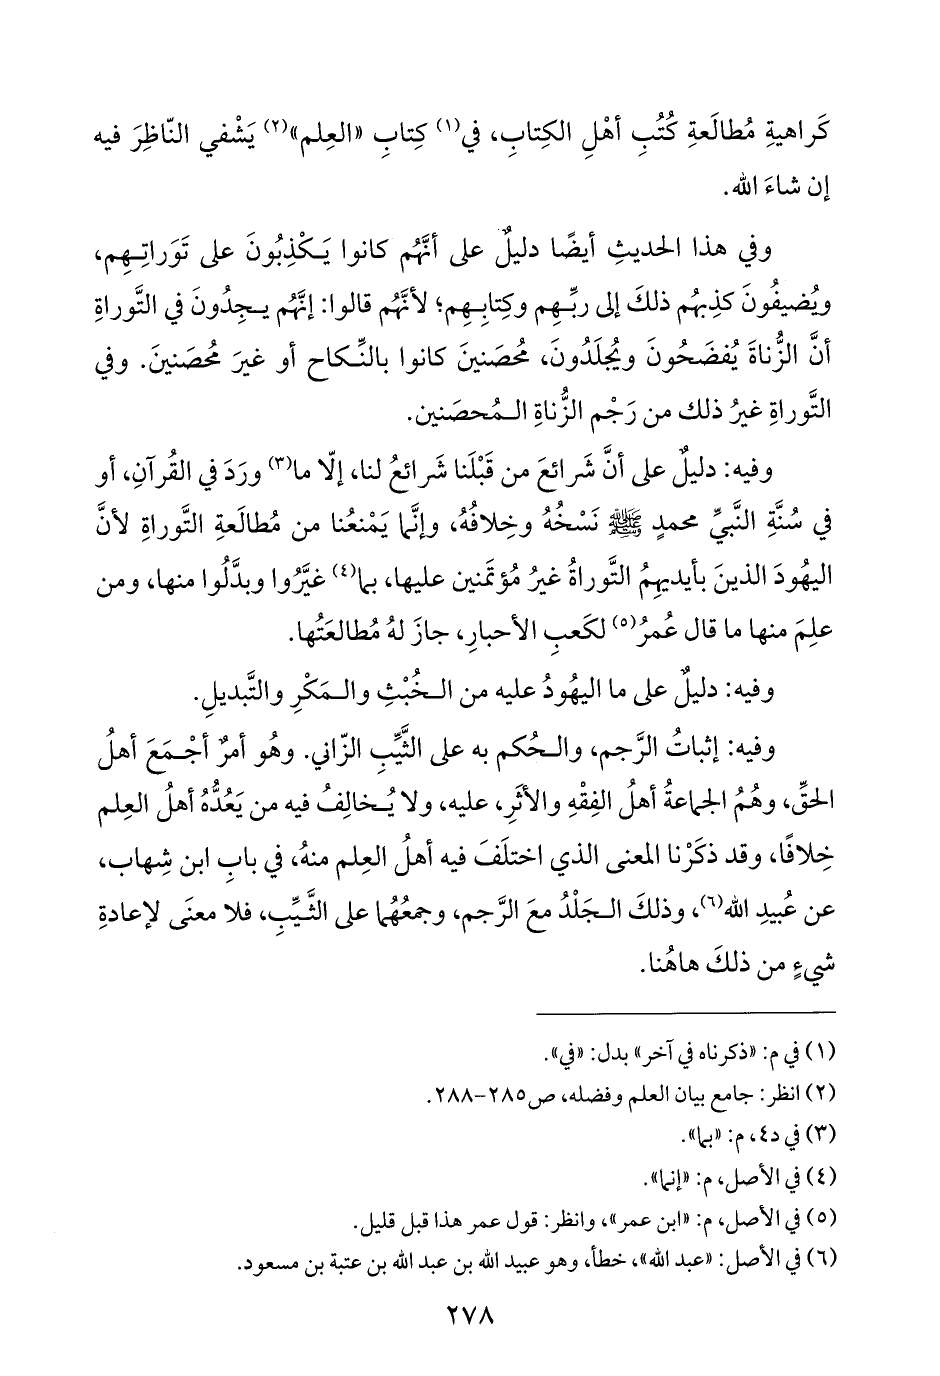 كَراهيةِ مُطالَعةِ كُتُبِ أهْلِ الكِتابِ، في(١) كِتابِ «العِلم»(٢) يَشْفي النّاظِرَ فيه
إن شاءَ الله.
وفي هذا الحديثِ أيضًا دليلٌ على أنَّهُم كانوا يَكْذِبُونَ على تَوَراتِهِم،
ويُضيفُونَ كذِبهُم ذلكَ إلى ربِّهِم وكِتابِهِم؛ لأنَّهُم قالوا: إنَّهُم يجِدُونَ في التَّوراةِ
أنَّ الزُّناةَ يُفضَحُونَ ويُجلَدُونَ، مُحصَنينَ كانوا بالنِّكاح أو غيرَ مُحصَنينَ. وفي
التَّوراةِ غيرُ ذلك من رَجْم الزُّناةِ المُحصَنين.
وفيه: دليلٌ على أنَّ شَرائعَ من قَبْلَنا شَرائعُ لنا، إلّا ما(٣) ورَدَ في القُرآنِ، أو
في سُنَّةِ النَّبيِّ محمدٍ ﷺ نَسْخُهُ وخِلافُهُ، وإنَّما يَمْنعُنا من مُطالَعةِ التَّوراةِ لأنَّ
اليهُودَ الذينَ بأيديهِمُ التَّوراةُ غيرُ مُؤتمَنين عليها، بما(٤) غيَّرُوا وبدَّلُوا منها، ومن
علِمَ منها ما قال عُمرُ(٥) لكَعبِ الأحبارِ، جازَ لهُ مُطالعَتُها.
وفيه: دليلٌ على ما اليهُودُ عليه من الخُبْثِ والمَكْرِ والتَّبديلِ.
وفيه: إثباتُ الرَّجم، والحُكم به على الثَّيِّبِ الزّاني. وهُو أمرٌ أجْمَعَ أهلُ
الحقِّ، وهُمُ الجماعةُ أهلُ الفِقْهِ والأثَرِ، عليه، ولا يُخالِفُ فيه من يَعُدُّهُ أهلُ العِلم
خِلافًا، وقد ذكَرْنا المعنى الذي اختلَفَ فيه أهلُ العِلم منهُ، في بابِ ابن شِهاب،
عن عُبيدِ الله(٦)، وذلكَ الجَلْدُ معَ الرَّجم، وجمعُهُما على الثَّيِّبِ، فلا معنَى لإعادةِ
شيءٍ من ذلكَ هاهُنا.
(١) في م: «ذكرناه في آخر» بدل: «في».
(٢) انظر: جامع بيان العلم وفضله، ص٢٨٥-٢٨٨.
(٣) في د٤، م: «بما».
(٤) في الأصل، م: «إنما».
(٥) في الأصل، م: «ابن عمر»، وانظر: قول عمر هذا قبل قليل.
(٦) في الأصل: «عبد الله»، خطأ، وهو عبيد الله بن عبد الله بن عتبة بن مسعود.
٢٧٨